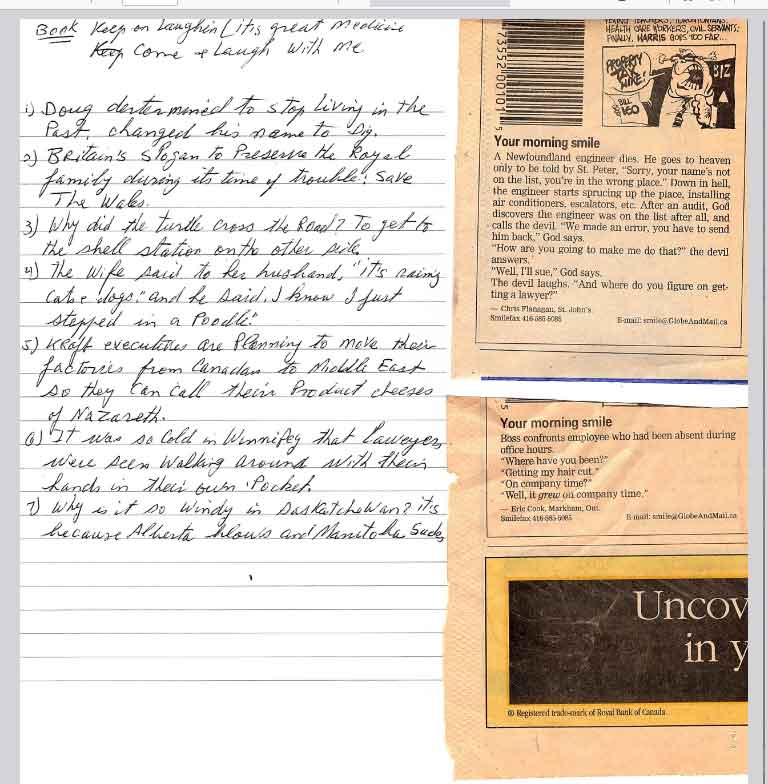 Book Keep on Laughin (its great Medicine
Keep Come & Laugh With Me.
1) Doug dertermined to stop Living in the
Past, changed his name to Dig.
2) Britain's Slogan to Preserve the Royal
family during its time of trouble: Save
The Wales.
3) Why did the turtle cross the Road? To get to
the shell station onth other side.
4) the Wife said to her husband, "it's raining
cats & dogs." and he said, I know I just
stepped in a Poodle."
5) Kraft executives are Planning to move their
factories from Canadan to Middle East
so they can call their Product cheeses
of Nazareth.
6) It was so Cold in Winnifeg that Lawyers
were seen Walking around with their
hands in their own Pocket.
7) Why is it so windy in Saskatchewan? it's
because Alberta blows and Manitoba Sucks,
73552 00101 5
HEALTH CARE WORKERS, CIVIL SERVANTS;
FINALLY, HARRIS GOES TOO FAR...
PROPERTY
TAX
HIKE!
BILL
160
BIZ
Your morning smile
A Newfoundland engineer dies. He goes to heaven
only to be told by St. Peter, "Sorry, your name's not
on the list, you're in the wrong place." Down in hell,
the engineer starts sprucing up the place, installing
air conditioners, escalators, etc. After an audit, God
discovers the engineer was on the list after all, and
calls the devil. "We made an error, you have to send
him back," God says.
"How are you going to make me do that?" the devil
answers.
"Well, I'll sue," God says.
The devil laughs. "And where do you figure on get-
ting a lawyer?"
— Chris Flanagan, St. John's
Smilefax 416-585-5085 E-mail: smile@GlobeAndMail.ca
5
Your morning smile
Boss confronts employee who had been absent during
office hours.
"Where have you been?"
"Getting my hair cut."
"On company time?"
"Well, it grew on company time."
— Eric Cook, Markham, Ont.
Smilefax 416-585-5085 E-mail: smile@GlobeAndMail.ca
Uncov
in y
® Registered trade-mark of Royal Bank of Canada